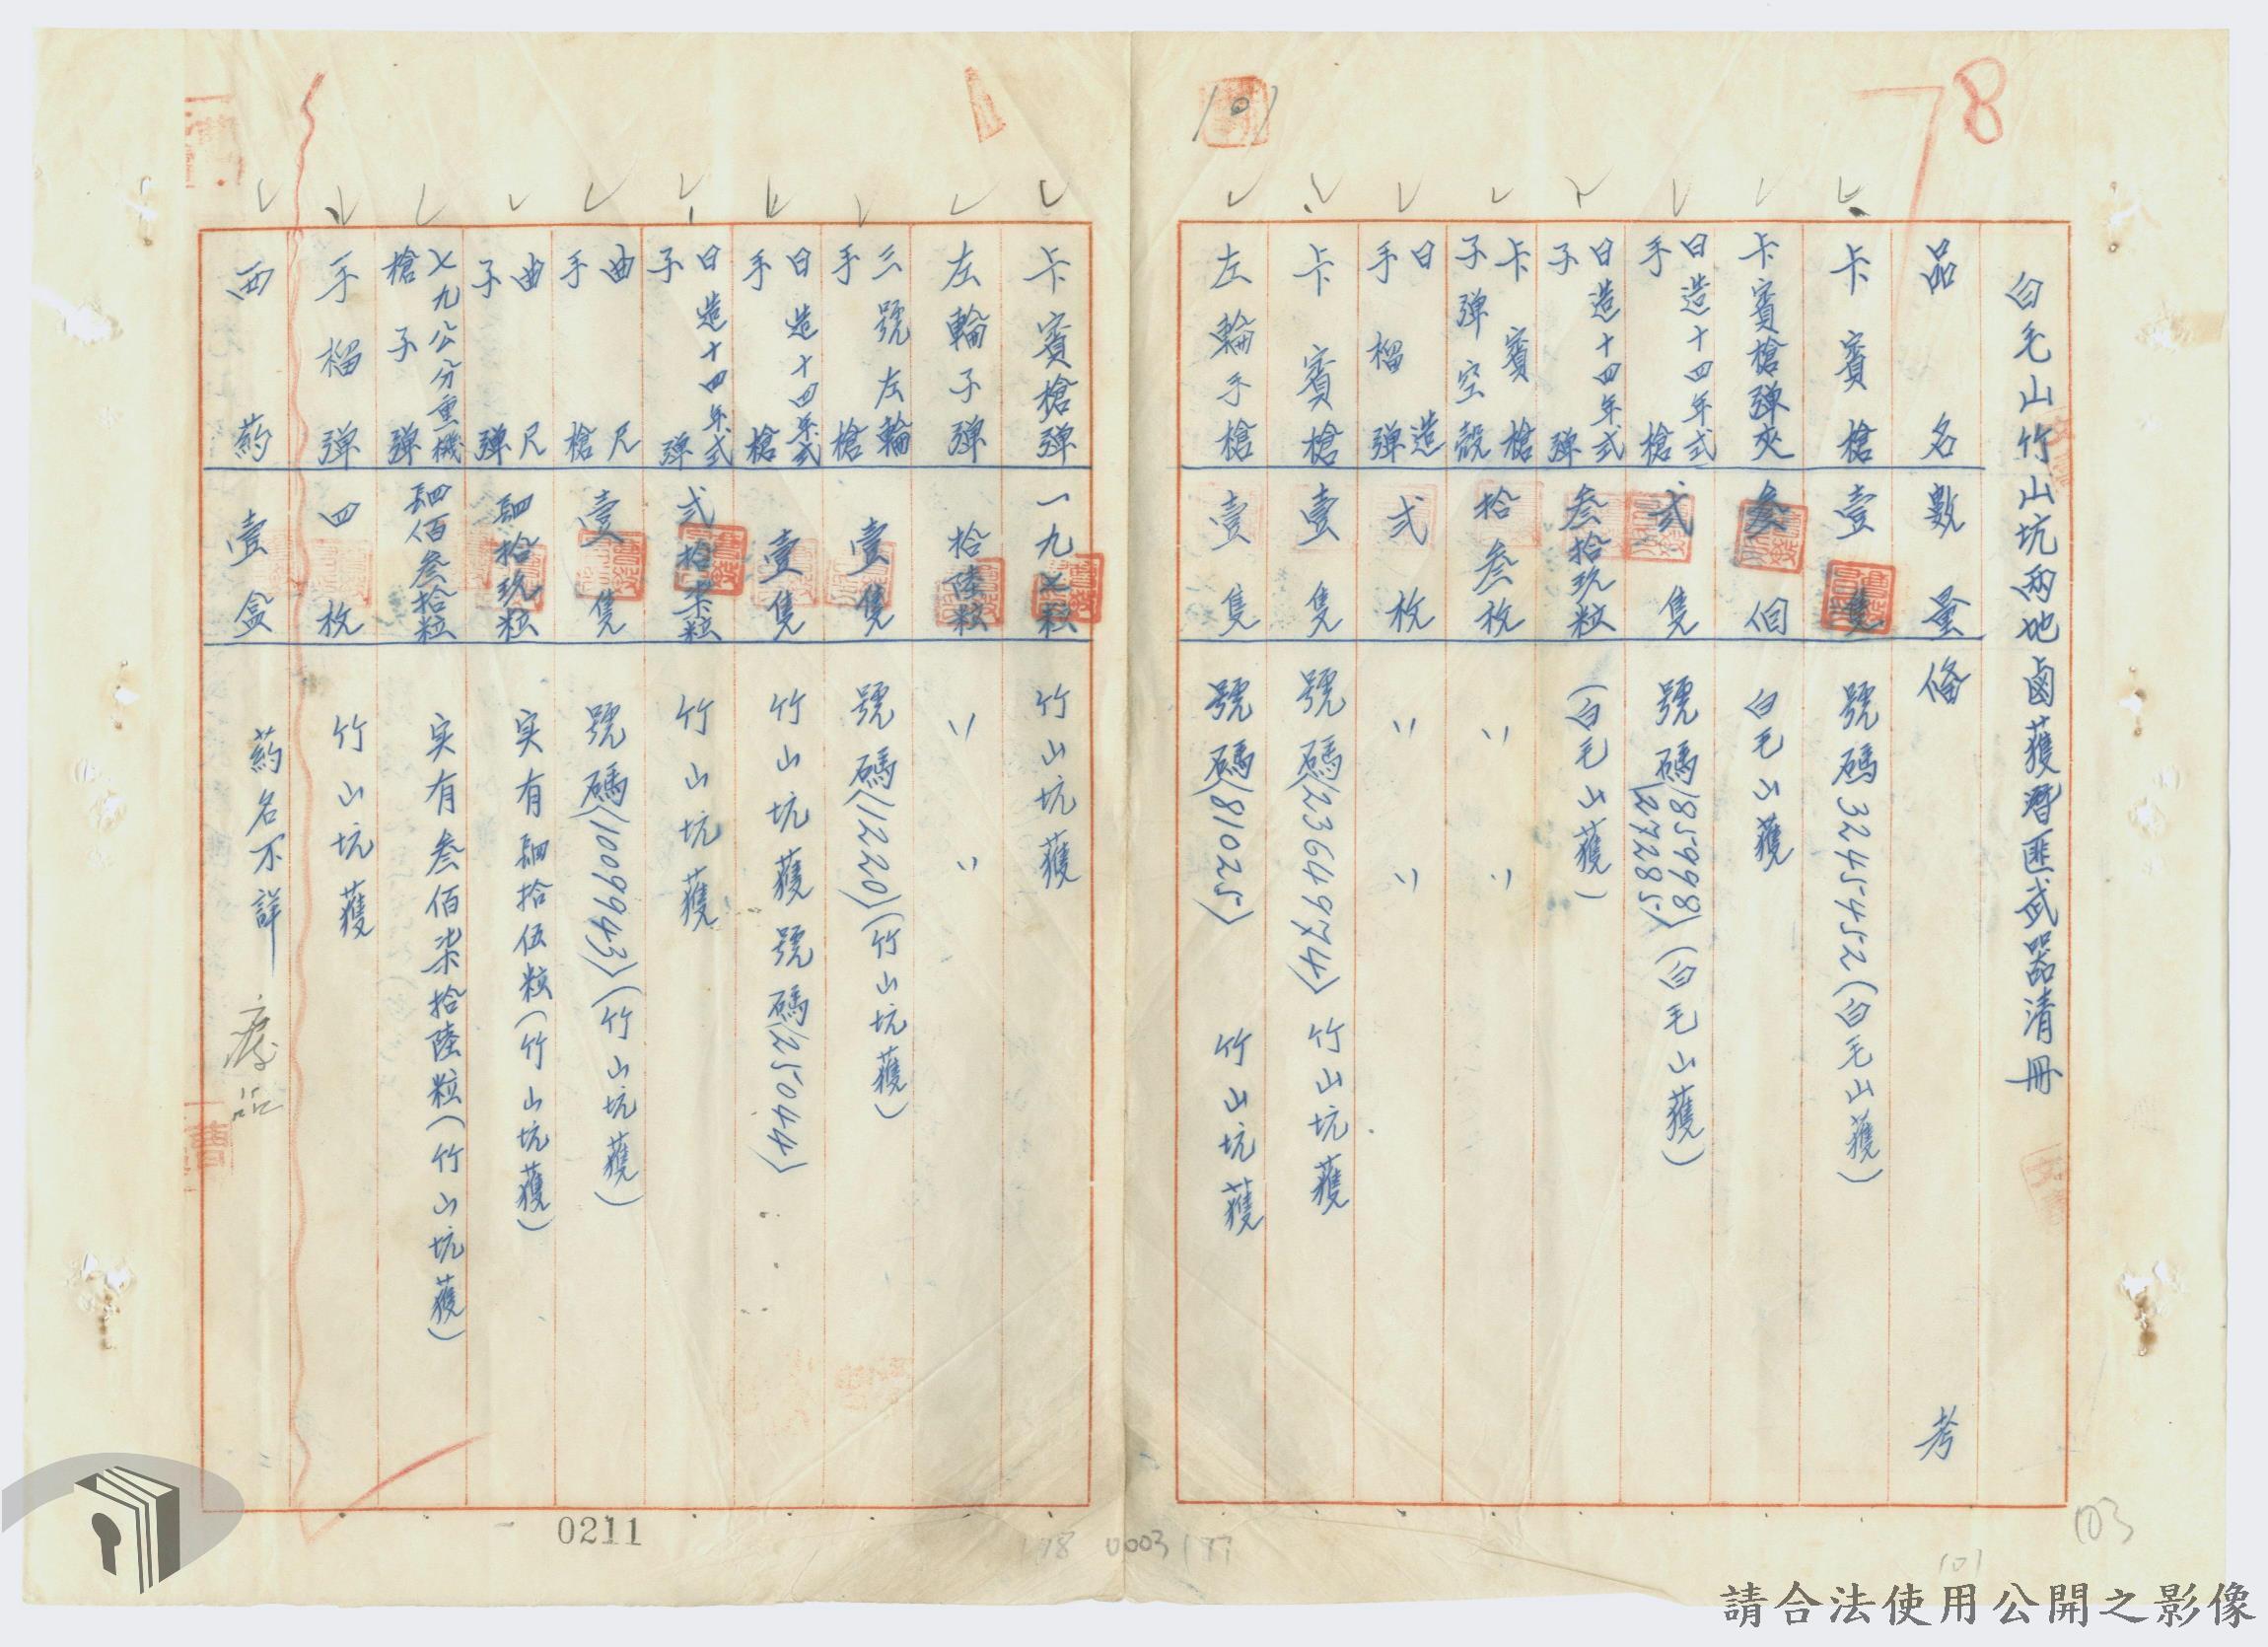 78
白毛山竹山坑兩地鹵獲潛匪武器清冊
品名 數量 備考
卡賓槍 壹隻 號碼3245452(白毛山獲)
卡賓槍彈夾 叁個 白毛山獲
日造十四年式手槍 弍隻 號碼(85998)(27285)(白毛山獲)
日造十四年式子彈 叁拾玖粒 (白毛山獲)
卡賓槍子彈空殼 拾叁枚 〃 〃
日造手榴彈 弍枚 〃 〃
卡賓槍 壹隻 號碼(2364974)竹山坑獲
左輪手槍 壹隻 號碼(81025) 竹山坑獲
卡賓槍彈 一九七粒 竹山坑獲
左輪子彈 拾陸粒 〃 〃
三號左輪手槍 壹隻 號碼(11220)(竹山坑獲)
日造十四年式手槍 壹隻 竹山坑獲號碼(25044)
日造十四年式子彈 弍拾柒粒 竹山坑獲
曲尺手槍 壹隻 號碼(1009943)(竹山坑獲)
曲尺子彈 肆拾玖粒 实有肆拾伍粒(竹山坑獲)
七九公分重機槍子彈 肆佰叁拾粒 实有叁佰柒拾陸粒(竹山坑獲)
手榴彈 四枚 竹山坑獲
西葯 壹盒 葯名不詳
101
0211
178 0003 177
101
103
請合法使用公開之影像